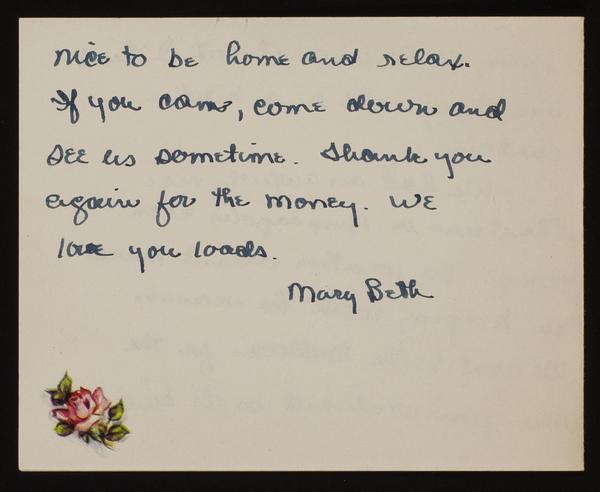 nice to be home and relax.
If you can, come down and
see us sometime. Thank you
again for the money. We
love you loads.
Mary Beth